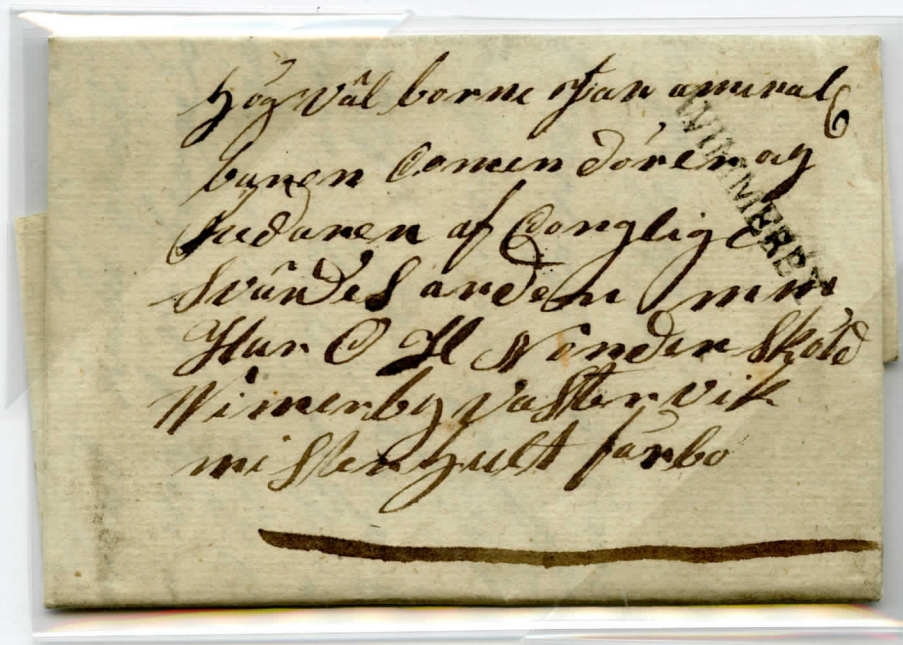 Hög Väl borne Har amiral
Comen dören og
Riddaren af Conglige
Svärdes arden mm
Har O H Nordenskold
Wimerby Vastervik
mistenhult farbo
WIMMERBY